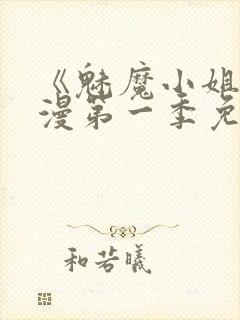 《魅魔小姐
漫第一季免
和若曦